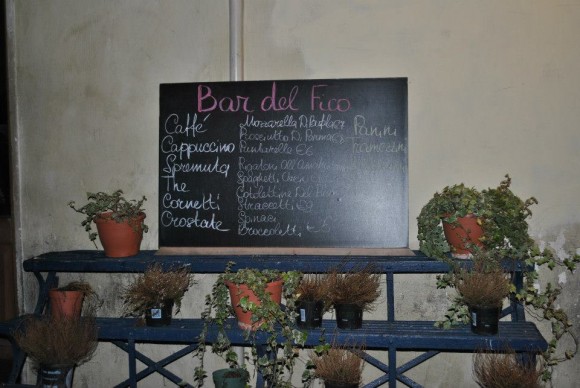 Bar del Fico
Caffé
Cappuccino
Spremuta
The
Cornetti
Crostate
Mozzarella Di Bufala €7
Prosciutto Di Parma €7
Puntarelle €6
Rigatoni All'
Spaghetti
Cotolettine Di
Straccetti €9
Spinaci
Broccoletti € 5
Panini
Tramezzini